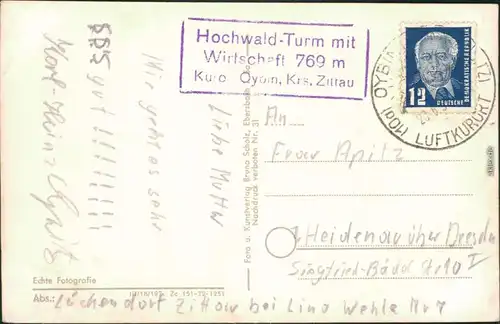 Hochwald-Turm mit
Wirtschaft 769 m
Kuro Oybin, Krs. Zittau
DEUTSCHE DEMOKRATISCHE REPUBLIK
12
DEUTSCHE
OYBIN
LUFTKURORT
Liebe Mutti
Mir geht es sehr
gut !!!!!!!
Karl-Heinz Apitz
Foto u. Kunstverlag Bruno Scholz, Ebersbach
Nachdruck verboten Nr. 31
An
Frau Apitz
Heidenau über Dresden
Str 10 I
Echte Fotografie
Abs.: Lückendorf Zittau bei Lina Wehle Nr 7